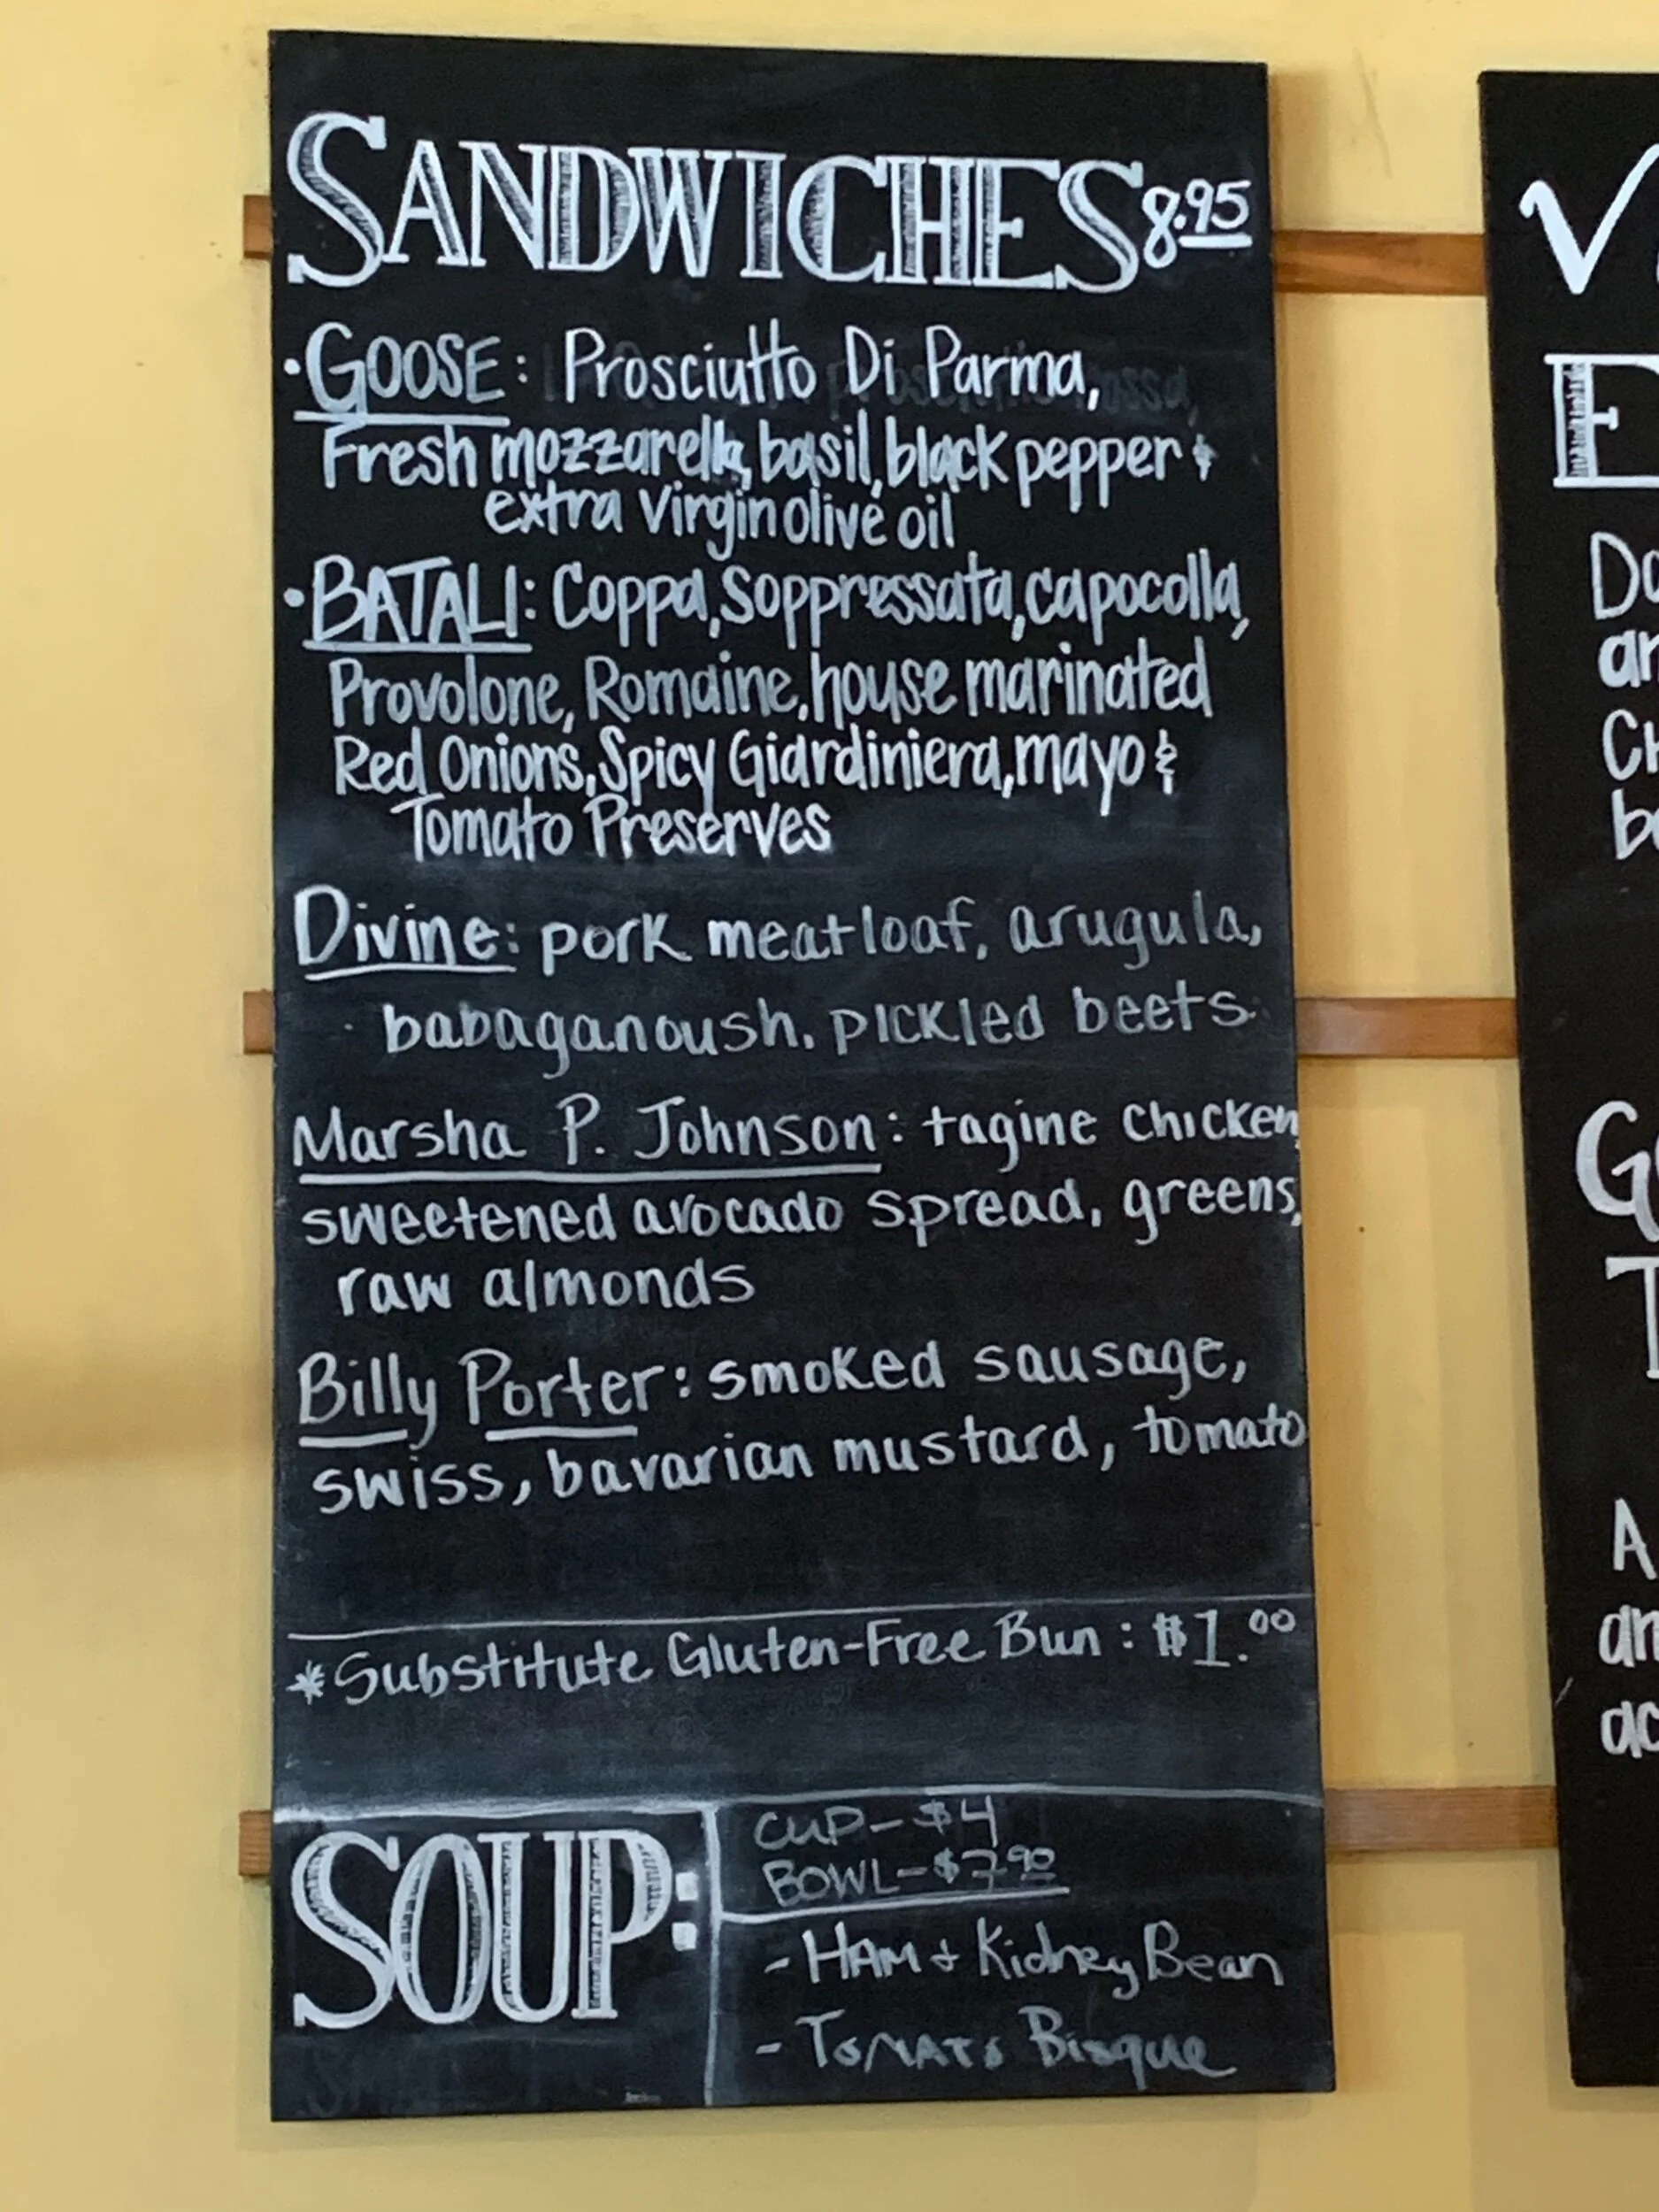 SANDWICHES 8.95
• GOOSE: Prosciutto Di Parma,
Fresh mozzarella, basil, black pepper &
extra virgin olive oil
• BATALI: Coppa, Soppressata, capocolla,
Provolone, Romaine, house marinated
Red Onions, Spicy Giardiniera, mayo &
Tomato Preserves
Divine: pork meatloaf, arugula,
babaganoush, pickled beets
Marsha P. Johnson: tagine chicken,
sweetened avocado spread, greens,
raw almonds
Billy Porter: smoked sausage,
swiss, bavarian mustard, tomato
*Substitute Gluten-Free Bun: $1.00
SOUP:
CUP- $4
BOWL- $7.90
- HAM + Kidney Bean
- TOMATO Bisque